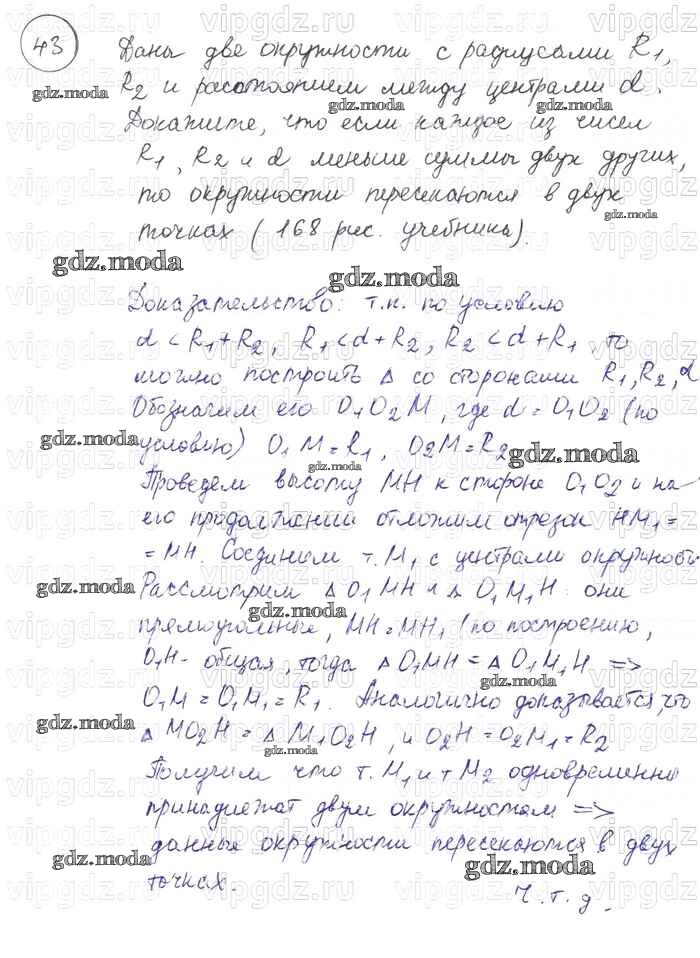 43
Даны две окружности с радиусами R1,
R2 и расстоянием между центрами d.
Докажите, что если каждое из чисел
R1, R2 и d меньше суммы двух других,
то окружности пересекаются в двух
точках (168 рис. учебника).
Доказательство: т.к. по условию
d < R1+R2, R1 < d+R2, R2 < d+R1 то
можно построить Δ со сторонами R1, R2, d
Обозначим его O1O2M, где d = O1O2 (по
условию) O1M = R1, O2M = R2
Проведем высоту MH к стороне O1O2 и на
его продолжении отложим отрезок HM1 =
= MH. Соединим т. M1 с центрами окружности
Рассмотрим Δ O1MH и Δ O1M1H: они
прямоугольные, MH = MH1 (по построению,
O1H - общая, тогда Δ O1MH = Δ O1M1H =>
O1M = O1M1 = R1. Аналогично доказывается, что
Δ MO2H = Δ M1O2H, и O2H = O2M1 = R2
Получим что т. M1 и т M2 одновременно
принадлежат двум окружностям =>
данные окружности пересекаются в двух
точках.
Ч.т.д.
gdz.moda
vipgdz.ru